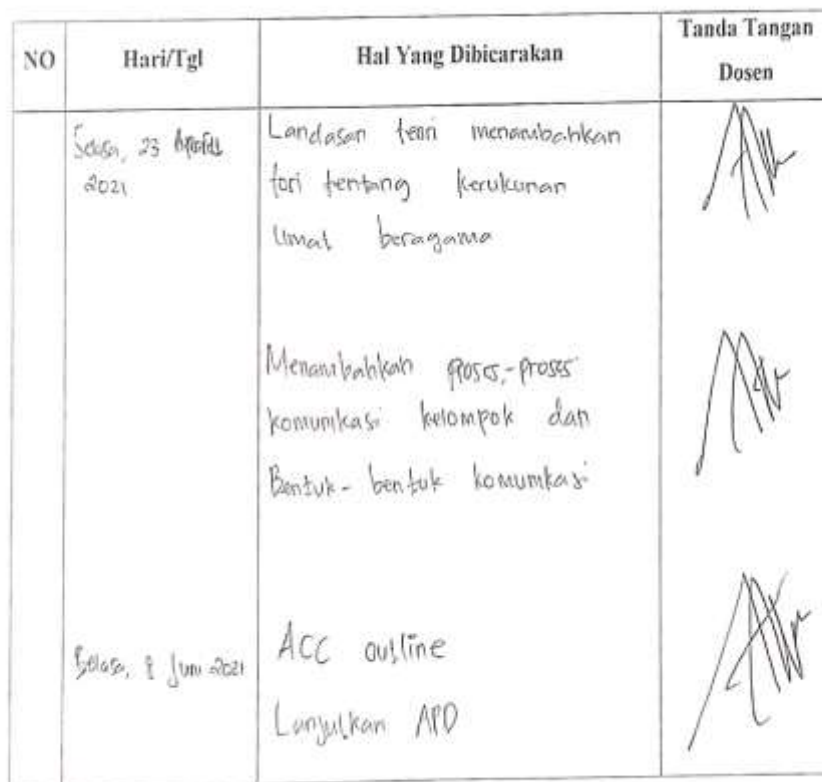 NO
Hari/Tgl
Hal Yang Dibicarakan
Tanda Tangan
Dosen
Selasa, 23
2021
Landasan teori menambahkan
tori tentang kerukunan
Umat beragama
Menambahkan proses-proses
komunikasi kelompok dan
Bentuk-bentuk komumkasi
Selasa, 8 Juni 2021
ACC outline
Lanjutkan APD